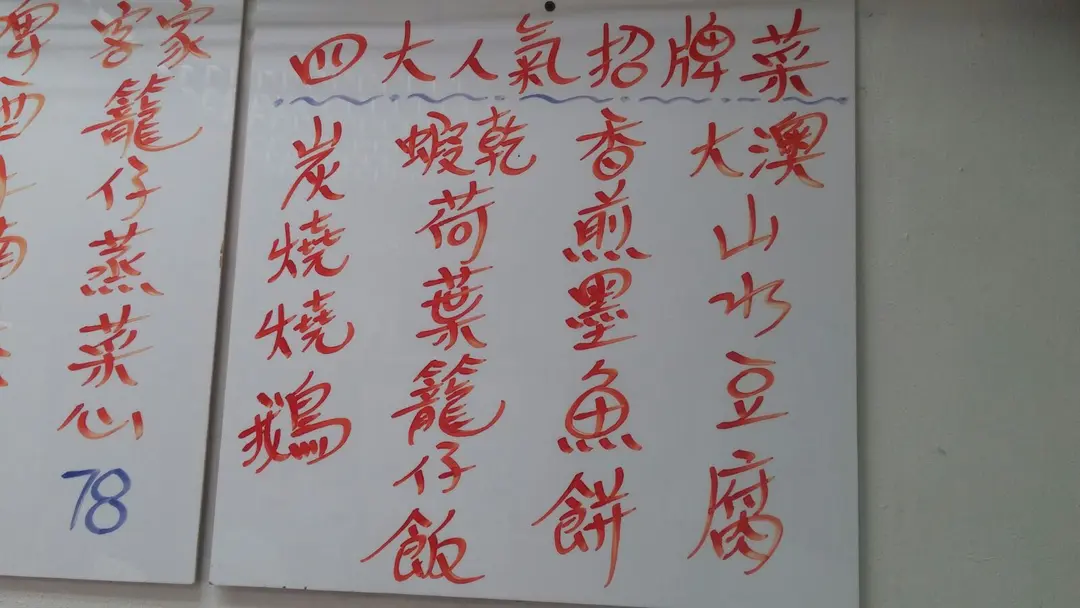 四大人氣招牌菜
大澳山水豆腐
香煎墨魚餅
蝦乾荷葉籠仔飯
炭燒燒鵝
客家籠仔蒸菜心
78